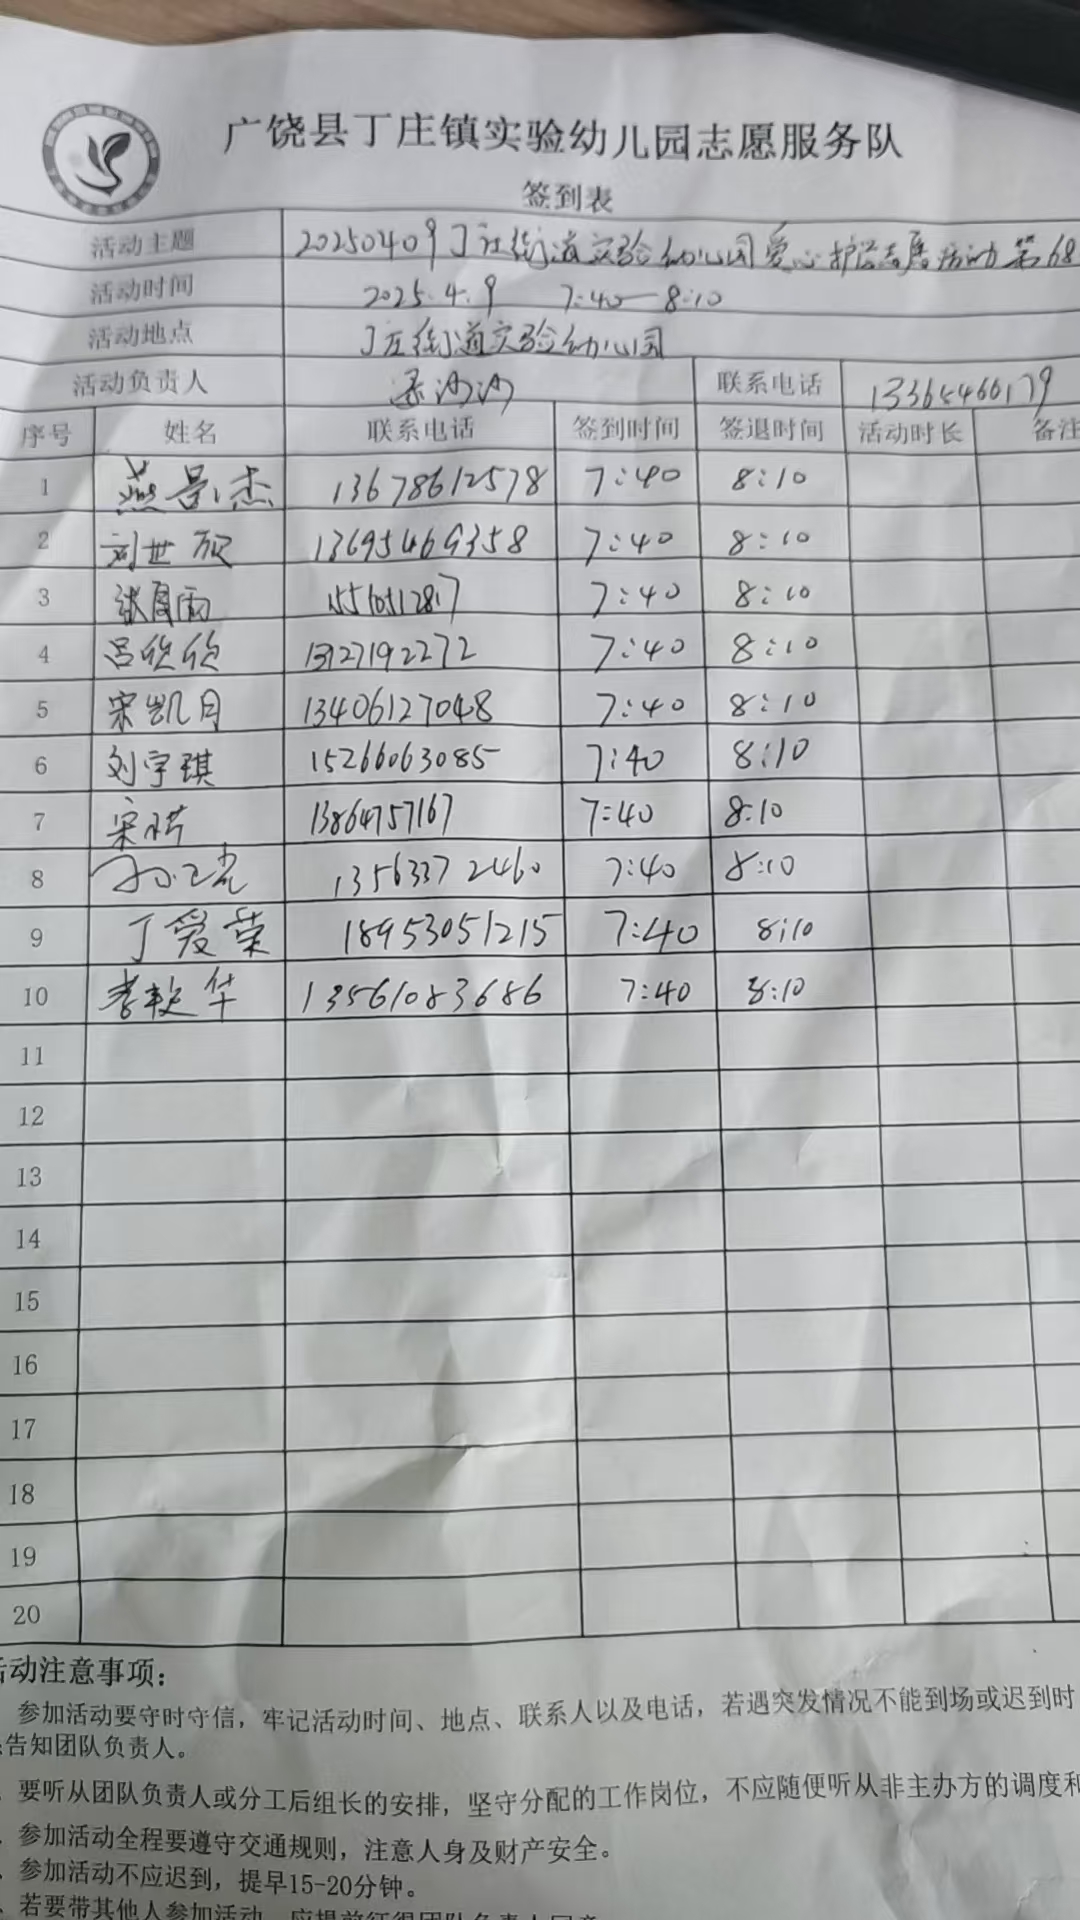 广饶县丁庄镇实验幼儿园志愿服务队
签到表
活动主题 20250409丁庄街道实验幼儿园爱心护学志愿活动第68
活动时间 2025.4.9 7:40—8:10
活动地点 丁庄街道实验幼儿园
活动负责人 梁沙沙 联系电话 13365460179
序号 姓名 联系电话 签到时间 签退时间 活动时长 备注
1 燕景杰 13678612578 7:40 8:10
2 刘世欣 13695469358 7:40 8:10
3 张夏雨 7:40 8:10
4 吕欣欣 13127192272 7:40 8:10
5 宋凯月 13406127048 7:40 8:10
6 刘宇琪 15266063085 7:40 8:10
7 宋 13864757167 7:40 8:10
8 13563372460 7:40 8:10
9 丁爱荣 18953051215 7:40 8:10
10 李软华 13561083686 7:40 8:10
11
12
13
14
15
16
17
18
19
20
活动注意事项：
参加活动要守时守信，牢记活动时间、地点、联系人以及电话，若遇突发情况不能到场或迟到时
告知团队负责人。
要听从团队负责人或分工后组长的安排，坚守分配的工作岗位，不应随便听从非主办方的调度和
参加活动全程要遵守交通规则，注意人身及财产安全。
参加活动不应迟到，提早15-20分钟。
若要带其他人参加活动，应提前征得团队负责人同意